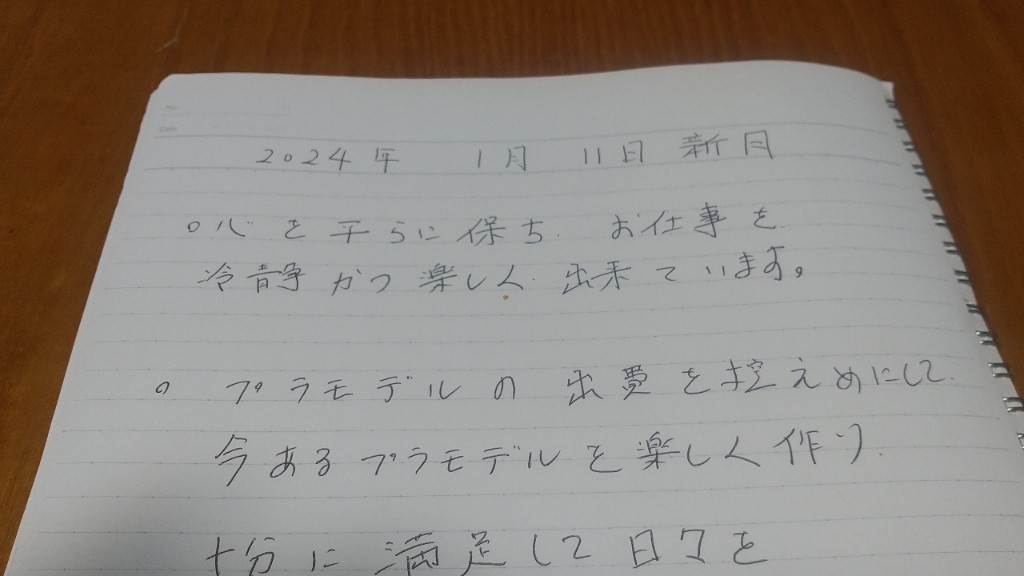 2024年 1月 11日 新月
○心を平らに保ち、お仕事を
冷静かつ楽しく、出来ています。
○ プラモデルの出費を控えめにして、
今あるプラモデルを楽しく作り、
十分に満足して日々を